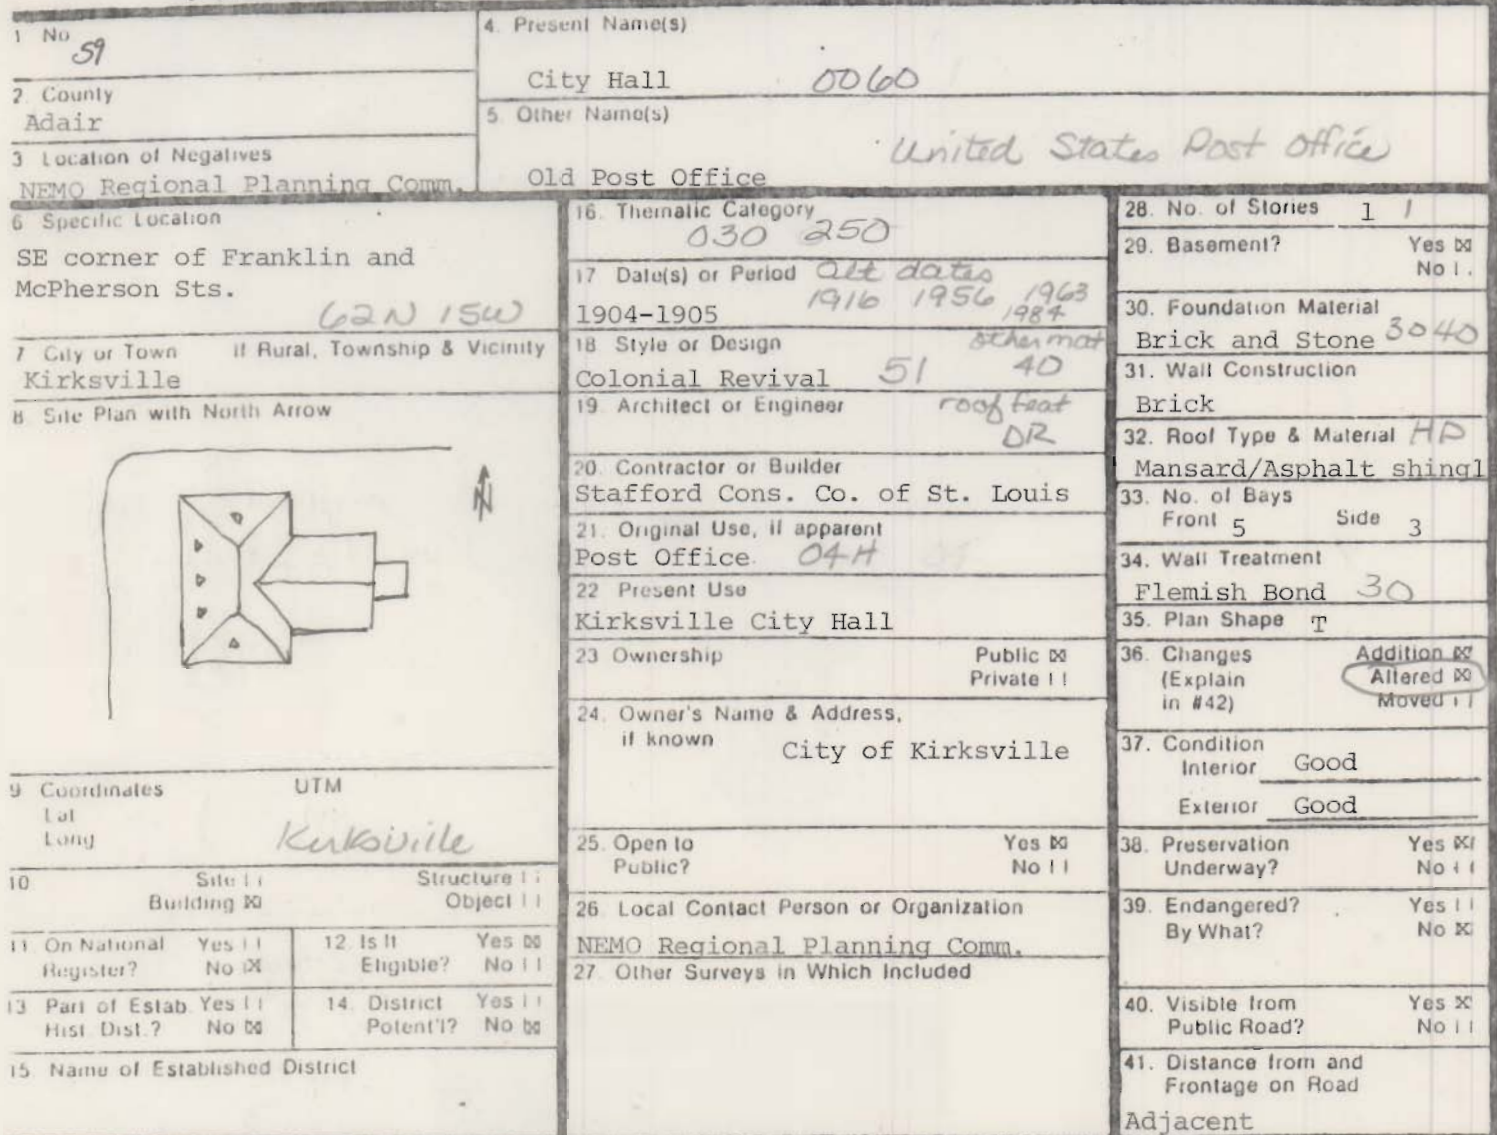 1 No
59
2. County
Adair
3 Location of Negatives
NEMO Regional Planning Comm.
4. Present Name(s)
City Hall 0060
5. Other Name(s)
United States Post Office
Old Post Office
6 Specific Location
SE corner of Franklin and
McPherson Sts.
62N 15W
7 City or Town If Rural, Township & Vicinity
Kirksville
8 Site Plan with North Arrow
N
9 Coordinates UTM
Lat
Long
Kirksville
10 Site Structure
Building Object
11 On National Yes
Register? No
12. Is It Yes
Eligible? No
13 Part of Estab Yes
Hist. Dist.? No
14. District Yes
Potent'l? No
15 Name of Established District
16. Thematic Category
030 250
17 Date(s) or Period alt dates
1916 1956 1963
1904-1905 1984
18 Style or Design other mat
Colonial Revival 51 40
19. Architect or Engineer roof feat
DR
20. Contractor or Builder
Stafford Cons. Co. of St. Louis
21. Original Use, if apparent
Post Office 04H
22 Present Use
Kirksville City Hall
23 Ownership Public
Private
24. Owner's Name & Address,
if known City of Kirksville
25. Open to Yes
Public? No
26 Local Contact Person or Organization
NEMO Regional Planning Comm.
27 Other Surveys in Which Included
28. No. of Stories 1 1
29. Basement? Yes
No
30. Foundation Material
Brick and Stone 3040
31. Wall Construction
Brick
32. Roof Type & Material HP
Mansard/Asphalt shingl
33. No. of Bays
Front 5 Side 3
34. Wall Treatment
Flemish Bond 30
35. Plan Shape T
36. Changes Addition
(Explain Altered
in #42) Moved
37. Condition
Interior Good
Exterior Good
38. Preservation Yes
Underway? No
39. Endangered? Yes
By What? No
40. Visible from Yes
Public Road? No
41. Distance from and
Frontage on Road
Adjacent